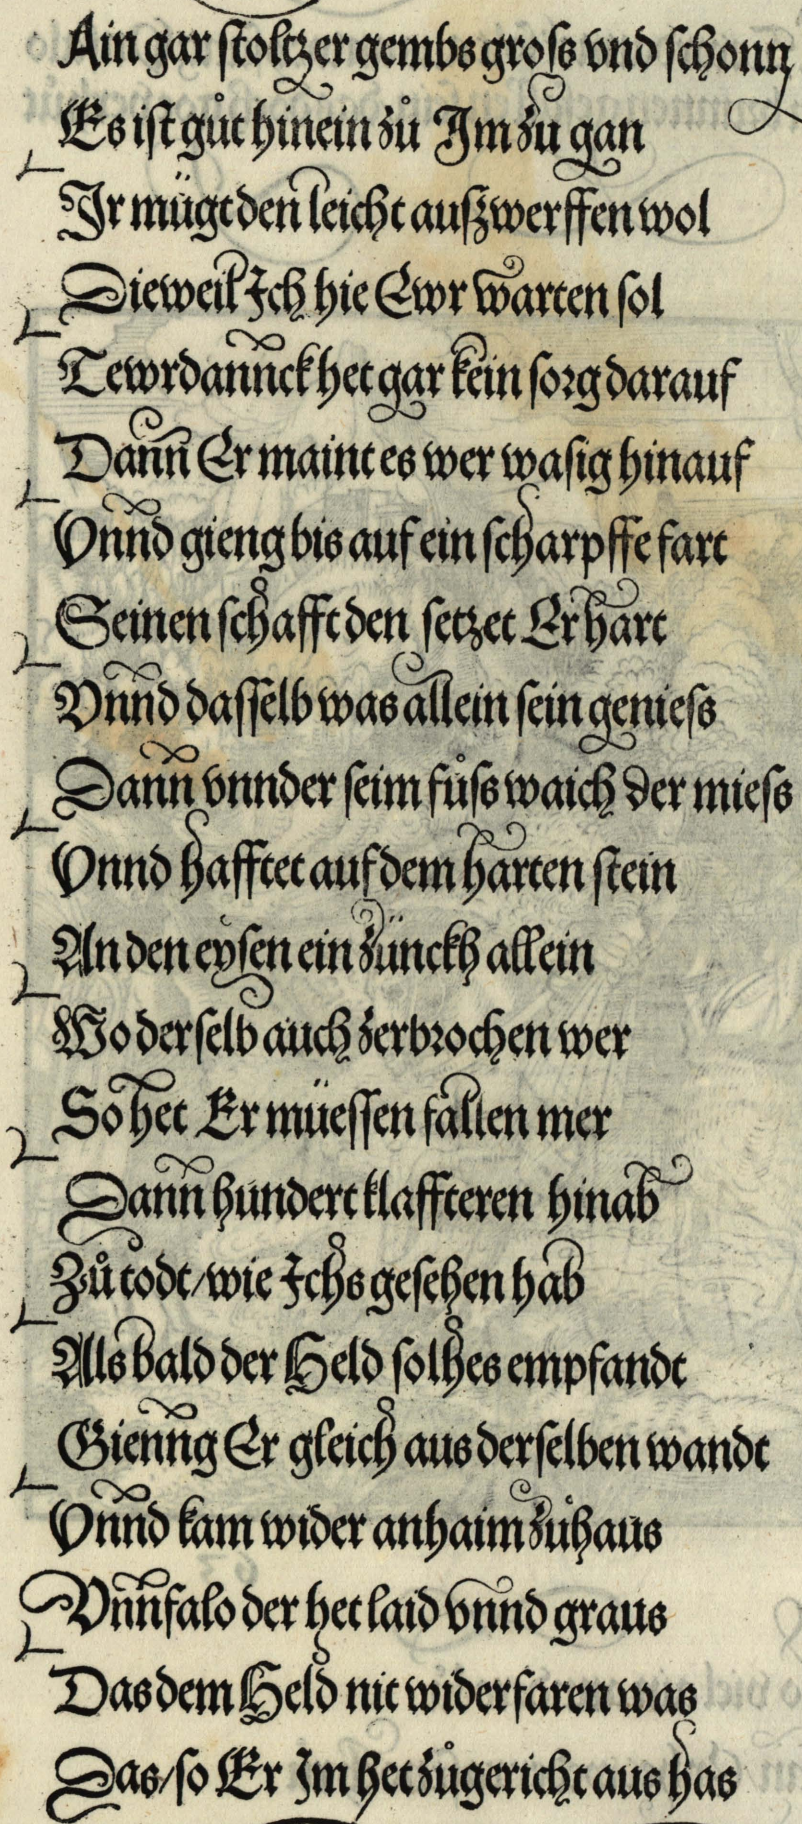 Ain gar stoltzer gembs gross vnd schonn
Es ist gůt hinein zů Im zu gan
Ir mügt den leicht auszwerffen wol
Dieweil Ich hie Ewr warten sol
Tewrdannck het gar kein sorg darauf
Dann Er maint es wer wasig hinauf
Vnnd gieng bis auf ein scharpffe fart
Seinen schafft den setzet Er hart
Vnnd dasselb was allein sein geniess
Dann vnnder seim fůss waich der miess
Vnnd hafftet auf dem harten stein
An den eysen ein zünckh allein
Wo derselb auch zerbrochen wer
So het Er müessen fallen mer
Dann hundert klaffteren hinab
Zů todt/wie Ichs gesehen hab
Als bald der Held solhes empfandt
Gienng Er gleich aus derselben wandt
Vnnd kam wider anhaim zůhaus
Vnnfalo der het laid vnnd graus
Das dem Held nit widerfaren was
Das/so Er Im het zůgericht aus has